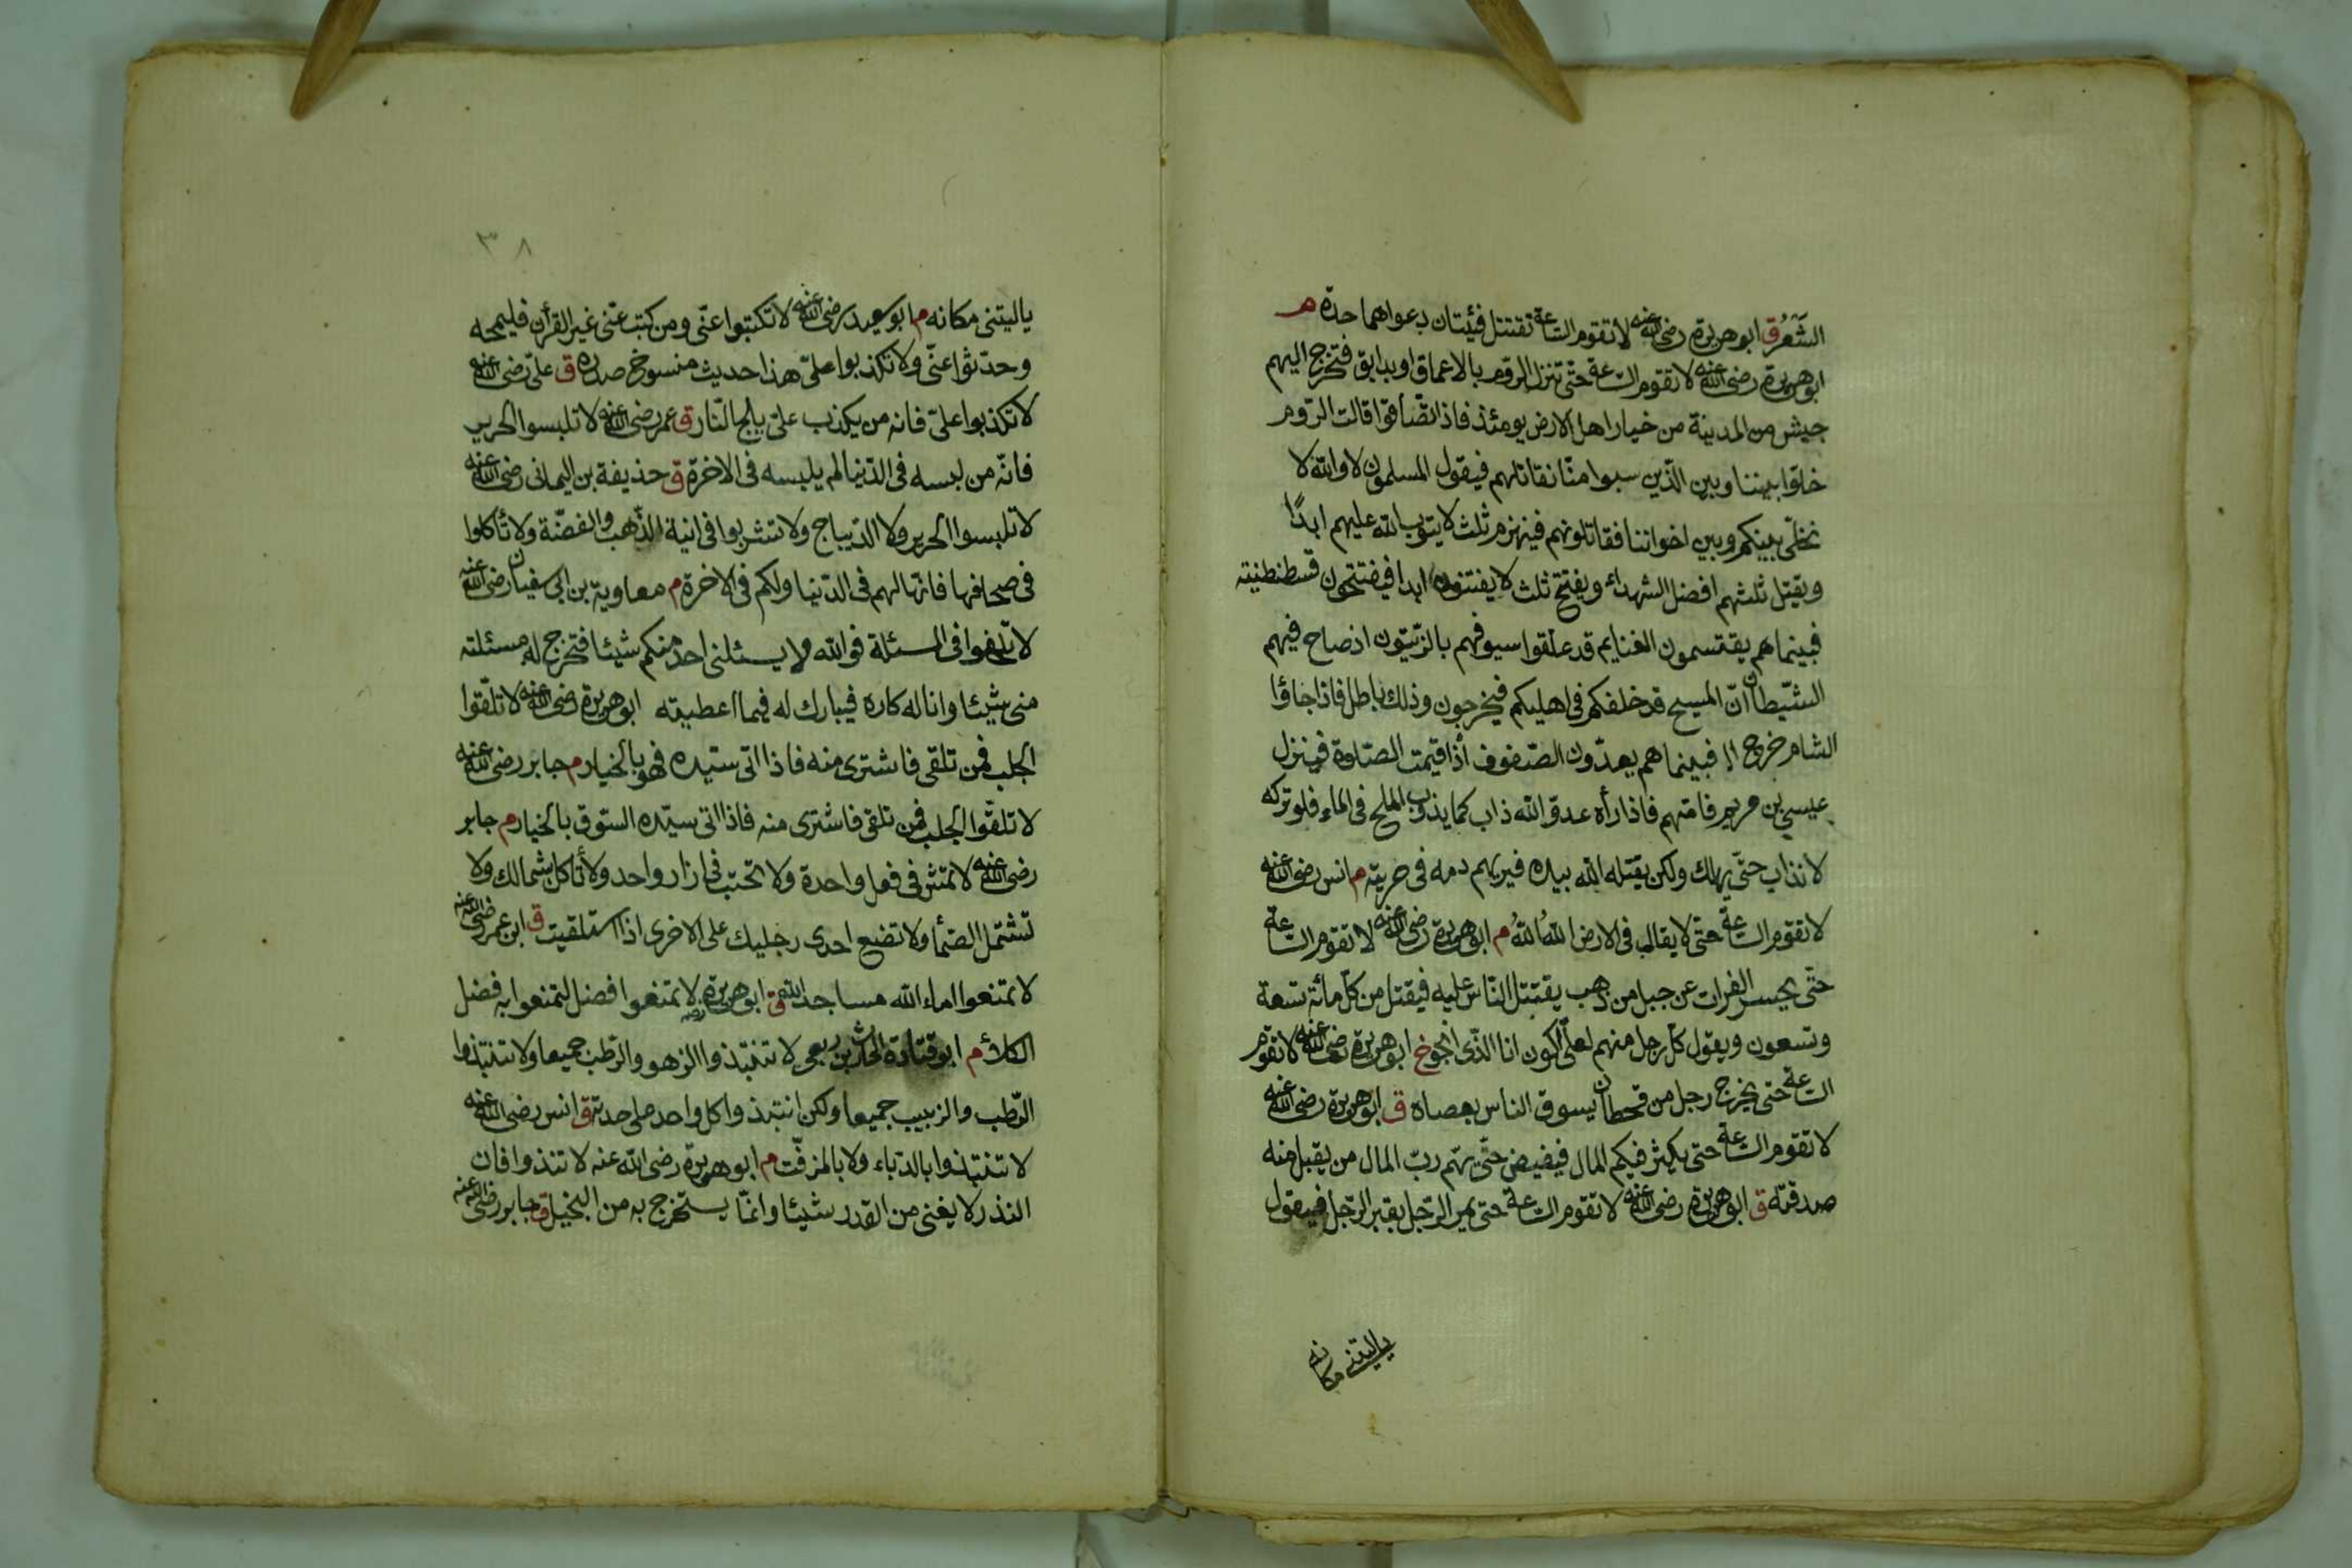 الشَّعَرُ ق ابو هريرة رضى الله عنه لا تقوم الساعة تقتتل فئيتان دعواهما حدة م
ابو هريرة رضى الله عنه لا تقوم الساعة حتّى تنزل الرّوم بالاعماق او بدابق فتخرج اليهم
جيش من المدينة من خيار اهل الارض يومئذ فاذا تصّافّوا قالت الرّوم
خلّوا بيننا وبين الّذين سبوا منّا نقاتلهم فيقول المسلمون لا والله لا
نخلّى بينكم وبين اخواننا فقاتلونهم فينهزم ثلث لا يتوب الله عليهم ابدًا
ويقتل ثلثهم افضل الشهداء ويفتتح ثلث لا يفتنون ابدا فيفتتحون قسطنطنيته
فبينما هم يقتسمون الغنايم قد علّقوا سيوفهم بالزّيتون اذ صاح فيهم
الشّيطان انّ المسيح قد خلفكم فى اهليكم فيخرجون وذلك باطل فاذا جاؤا
الشام خرج فبينما هم يعدّون الصّفوف أذا قيمت الصّلوة فينزل
عيسى بن مريم فامّهم فاذا رأه عدوّ الله ذاب كما يذوب الملح فى الماء فلو تركه
لانذاب حتّى يهلك ولكن يقتله الله بيده فيريهم دمه فى حربته م انس رضى الله عنه
لا تقوم الساعة حتى لا يقال فى الارض اللهُ اللهُ م ابو هريرة رضى الله عنه لا تقوم الساعة
حتّى يحسر الفرات عن جبل من ذهب يقتتل النّاس عليه فيقتل من كلّ مائة تسعة
وتسعون ويقول كلّ رجل منهم لعلّى اكون انا الذّى انجو خ ابو هريرة رضى الله عنه لا تقوم
الساعة حتى يخرج رجل من قحطان يسوق الناس بعصاه ق ابو هريرة رضى الله عنه
لا تقوم الساعة حتى يكثر فيكم المال فيفيض حتّى يهّم ربّ المال من يقبل منه
صدقتّه ق ابو هريرة رضى الله عنه لا تقوم الساعة حتى يمر الرّجل بقبر الرّجل فيقول
ياليتنى مكانه
٣٨
ياليتنى مكانه م ابو سعيد رضى الله عنه لا تكتبوا عنّى ومن كتب عنّى غير القرأن فليمحه
وحدّثوا عنّى ولا تكذبوا علىّ هذا حديث منسوخ صدره ق علىّ رضى الله عنه
لا تكذبوا علىّ فانه من يكذب علىّ يلج النّار ق عمر رضى الله عنه لا تلبسوا الحرير
فانّه من لبسه فى الدّنيا لم يلبسه فى الاخرة ق حذيفة بن اليمانى رضى الله عنه
لا تلبسوا الحرير ولا الدّيباج ولا تشربوا فى انية الذّهب والفضّة ولا تأكلوا
فى صحافها فانّها لهم فى الدّنيا ولكم فى الاخرة م معاوية بن ابى سفيان رضى الله عنه
لا تلحفوا فى المسئلة فوالله لا يسئلنى احد منكم شيئا فتخرج له مسئلته
منى شيئا وانا له كاره فيبارك له فيما اعطيته ابو هريرة رضى الله عنه لا تلّقوا
الجلب فمن تلقى فاشترى منه فاذا اتى ستيده فهو بالخيار م جابر رضى الله عنه
لا تلقّوا الجلب فمن تلقى فاشترى منه فاذا اتى سيّده السّوق بالخيار م جابر
رضى الله عنه لا تمش فى نعل واحدة ولا تحتب فى ازار واحد ولا تأكل بشمالك ولا
تشتمل الصّمأ ولا تضع احدى رجليك على الاخرى اذا استلقيت ق ابن عمر رضى الله عنه
لا تمنعوا اماء الله مساجد الله ق ابو هريرة رضه لا تمنعوا افضل لتمنعوا به فضل
الكلأ م ابو قتادة الحارث بن ربعى لا تنتبذوا الزهو والرّطب جميعا ولا تنتبذوا
الرّطب والزبيب جميعا ولكن انتبذوا كل واحد على حدته ق انس رضى الله عنه
لا تنتبذوا بالدّباء ولا بالمزفّت م ابو هريرة رضى الله عنه لا تنذوا فان
النذر لا يغنى من القدر شيئا وانمّا يستخرج به من البخيل ق جابر رضى الله عنه